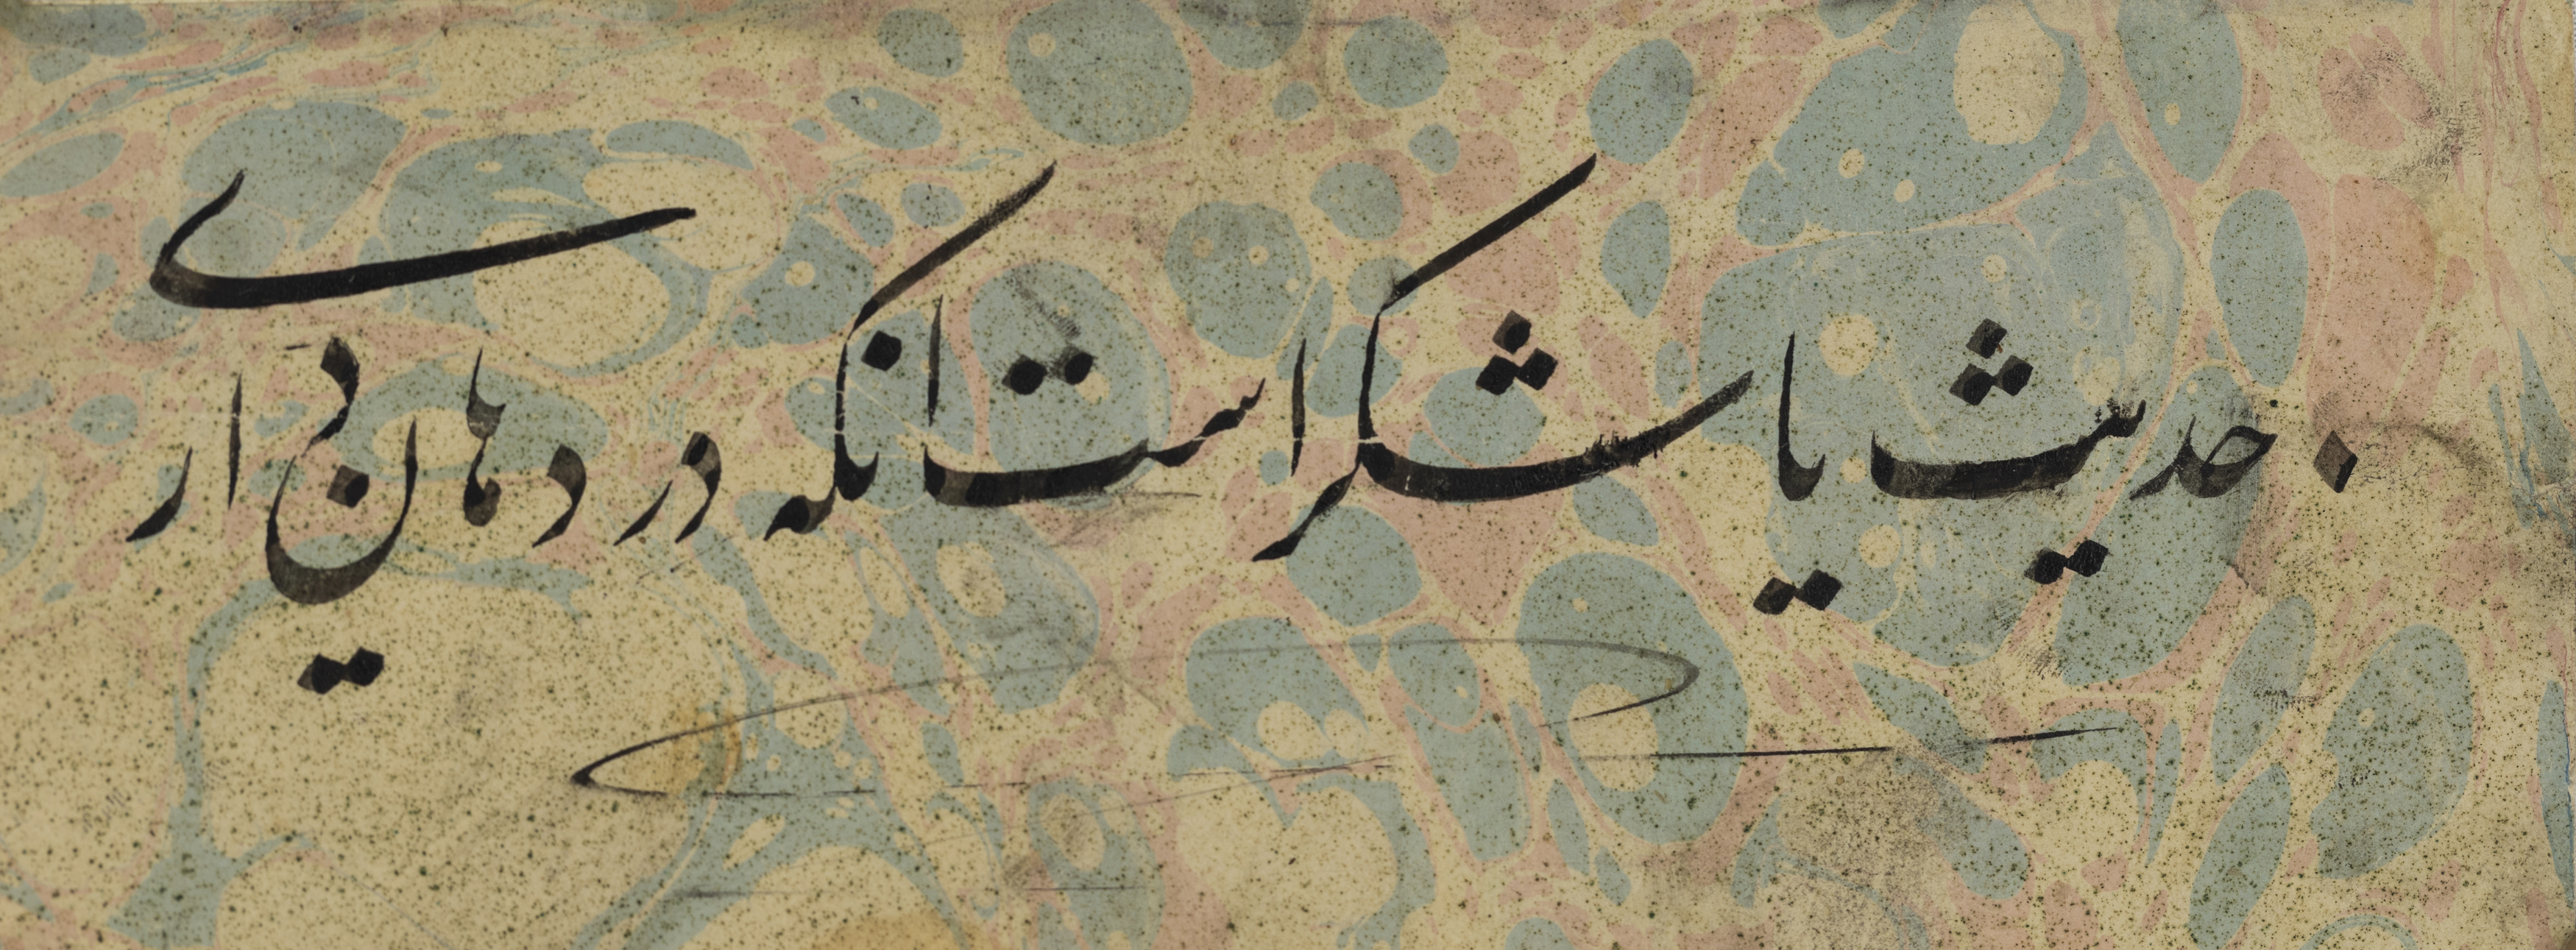 حدیث یا شکر است انکه در دهان داری